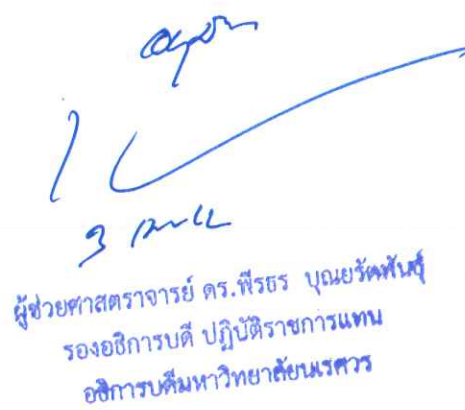 อนุมัติ
ผู้ช่วยศาสตราจารย์ ดร.พีรธร บุณยรัตพันธุ์
รองอธิการบดี ปฏิบัติราชการแทน
อธิการบดีมหาวิทยาลัยนเรศวร